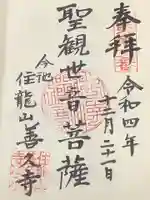 奉拝
令和四年
十一月二十一日
聖観世音菩薩
今池
住龍山善久寺